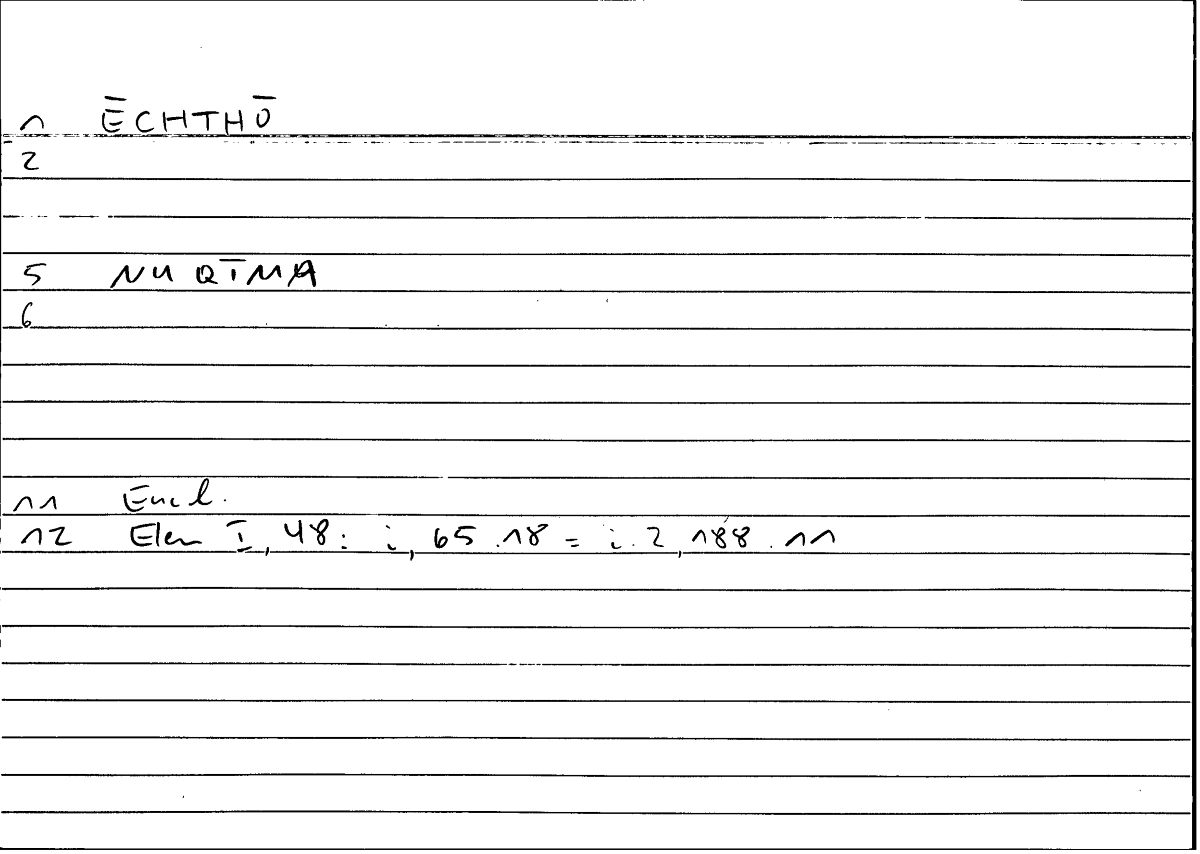 1 ĒCHTHŌ
2
5 NU QĪMA
6
11 Eucl.
12 Elem I, 48: i, 65.18 = i.2, 188.11